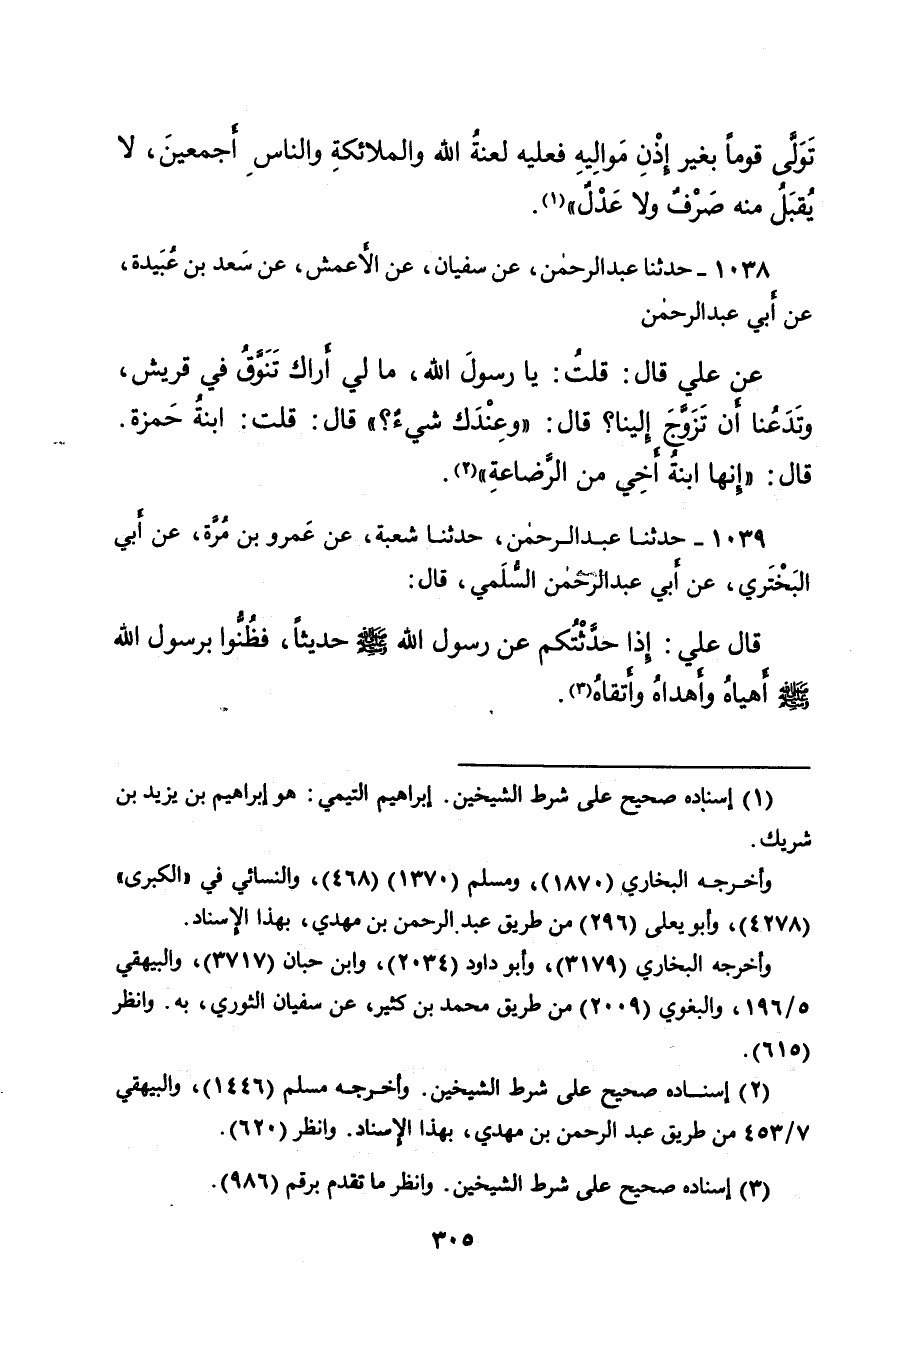 تَوَلَّى قوماً بغير إِذْنِ مَوالِيهِ فعليه لعنةُ الله والملائكةِ والناسِ أَجمعينَ، لا
يُقبَلُ منه صَرْفٌ ولا عَدْلٌ»(١).
١٠٣٨ ـ حدثنا عبدالرحمٰن، عن سفيان، عن الأَعمش، عن سَعد بن عُبَيدة،
عن أَبي عبدالرحمٰن
عن علي قال: قلتُ: يا رسولَ الله، ما لي أَراك تَنَوَّقُ في قريش،
وتَدَعُنا أَن تَزَوَّجَ إِلينا؟ قال: «وعِنْدَك شيءٌ؟» قال: قلت: ابنةُ حَمزة.
قال: «إِنها ابنةُ أَخي من الرَّضاعةِ»(٢).
١٠٣٩ ـ حدثنا عبدالرحمٰن، حدثنا شعبة، عن عَمرو بن مُرَّة، عن أَبي
البَخْتَري، عن أَبي عبدالرَّحمٰن السُّلَمي، قال:
قال علي: إِذا حدَّثْتُكم عن رسول الله ﷺ حديثاً، فظُنُّوا برسول الله
ﷺ أَهياهُ وأَهداهُ وأَتقاهُ(٣).
(١) إسناده صحيح على شرط الشيخين. إبراهيم التيمي: هو إبراهيم بن يزيد بن
شريك.
وأخرجه البخاري (١٨٧٠)، ومسلم (١٣٧٠) (٤٦٨)، والنسائي في «الكبرى»
(٤٢٧٨)، وأبو يعلى (٢٩٦) من طريق عبد الرحمن بن مهدي، بهذا الإسناد.
وأخرجه البخاري (٣١٧٩)، وأبو داود (٢٠٣٤)، وابن حبان (٣٧١٧)، والبيهقي
١٩٦/٥، والبغوي (٢٠٠٩) من طريق محمد بن كثير، عن سفيان الثوري، به. وانظر
(٦١٥).
(٢) إسناده صحيح على شرط الشيخين. وأخرجه مسلم (١٤٤٦)، والبيهقي
٤٥٣/٧ من طريق عبد الرحمن بن مهدي، بهذا الإسناد. وانظر (٦٢٠).
(٣) إسناده صحيح على شرط الشيخين. وانظر ما تقدم برقم (٩٨٦).
٣٠٥